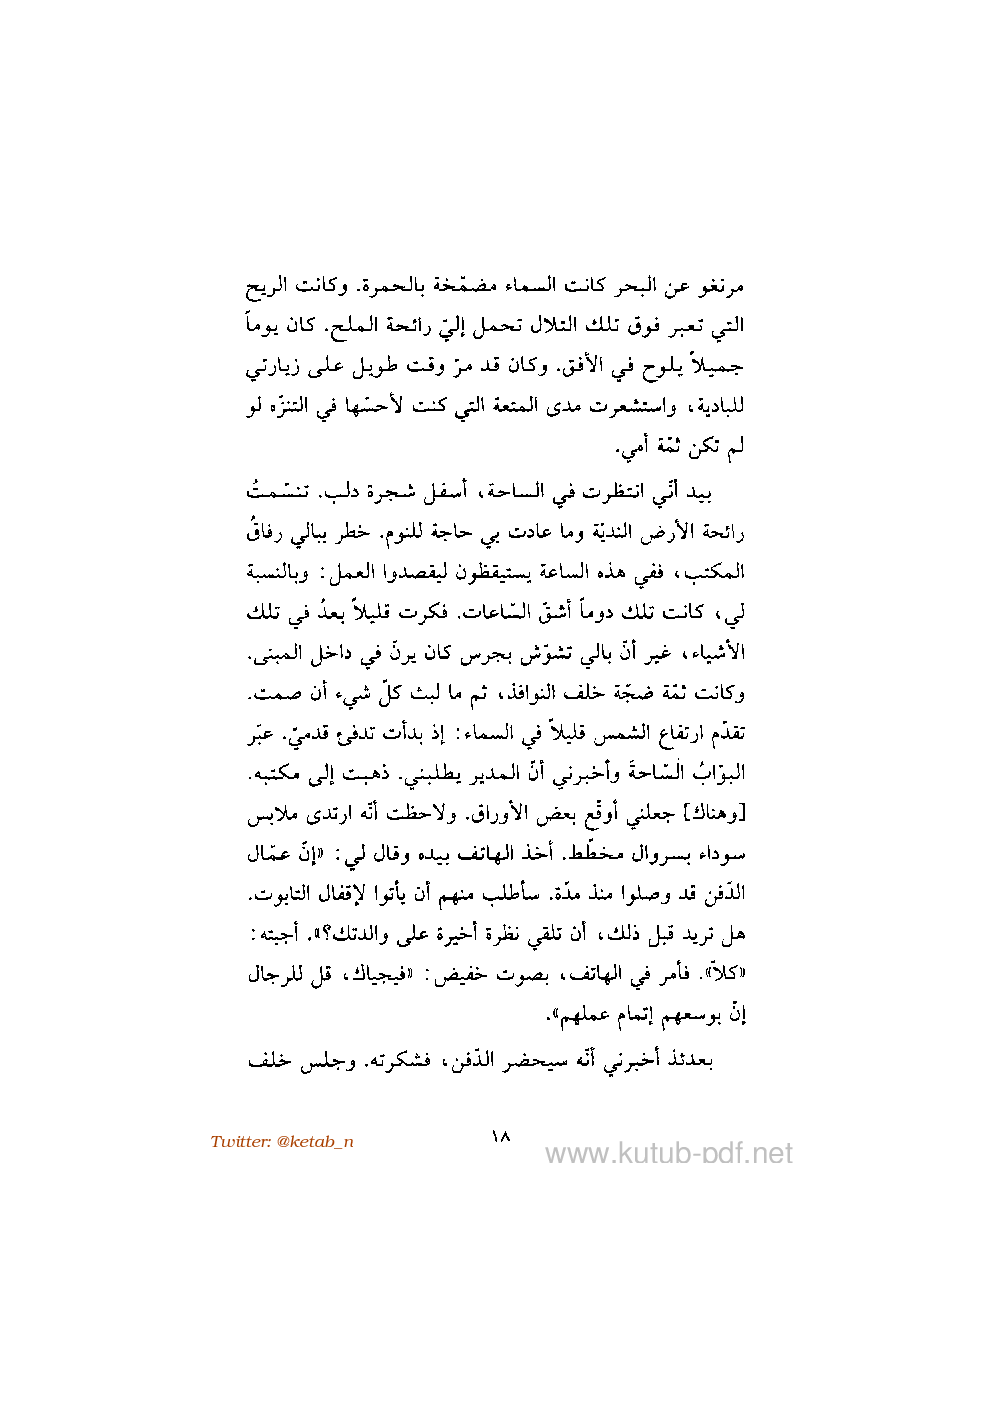 مرنغو عن البحر كانت السماء مضمّخة بالحمرة. وكانت الريح
التي تعبر فوق تلك التلال تحمل إليّ رائحة الملح. كان يوماً
جميلاً يلوح في الأفق. وكان قد مرّ وقت طويل على زيارتي
للبادية، واستشعرت مدى المتعة التي كنت لأحسّها في التنزّه لو
لم تكن ثمّة أمي.
بيد أنّي انتظرت في الساحة، أسفل شجرة دلب. تنسّمتُ
رائحة الأرض النديّة وما عادت بي حاجة للنوم. خطر ببالي رفاقُ
المكتب، ففي هذه الساعة يستيقظون ليقصدوا العمل: وبالنسبة
لي، كانت تلك دوماً أشقّ السّاعات. فكرت قليلاً بعدُ في تلك
الأشياء، غير أنّ بالي تشوّش بجرس كان يرنّ في داخل المبنى.
وكانت ثمّة ضجّة خلف النوافذ، ثم ما لبث كلّ شيء أن صمت.
تقدّم ارتفاع الشمس قليلاً في السماء: إذ بدأت تدفئ قدميّ. عبّر
البوّابُ السّاحةَ وأخبرني أنّ المدير يطلبني. ذهبت إلى مكتبه.
[وهناك] جعلني أوقّع بعض الأوراق. ولاحظت أنّه ارتدى ملابس
سوداء بسروال مخطّط. أخذ الهاتف بيده وقال لي: «إنّ عمّال
الدّفن قد وصلوا منذ مدّة. سأطلب منهم أن يأتوا لإقفال التابوت.
هل تريد قبل ذلك، أن تلقي نظرة أخيرة على والدتك؟». أجبته:
«كلاّ». فأمر في الهاتف، بصوت خفيض: «فيجياك، قل للرجال
إنّ بوسعهم إتمام عملهم».
بعدئذ أخبرني أنّه سيحضر الدّفن، فشكرته. وجلس خلف
١٨
Twitter: @ketab_n
www.kutub-pdf.net